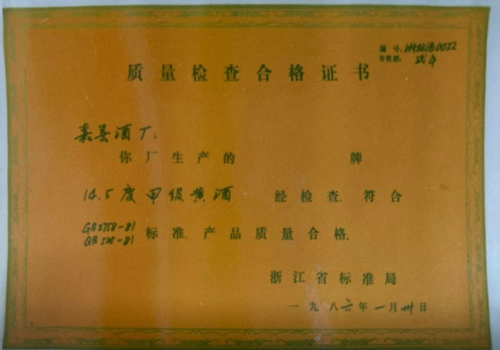 编号:
有效期:
质量检查合格证书
酒厂:
你厂生产的 牌
14.5度甲级黄酒 经检查.符合
GB2758-81
QB525-81 标准.产品质量合格.
浙江省标准局
一九八六年一月卅日